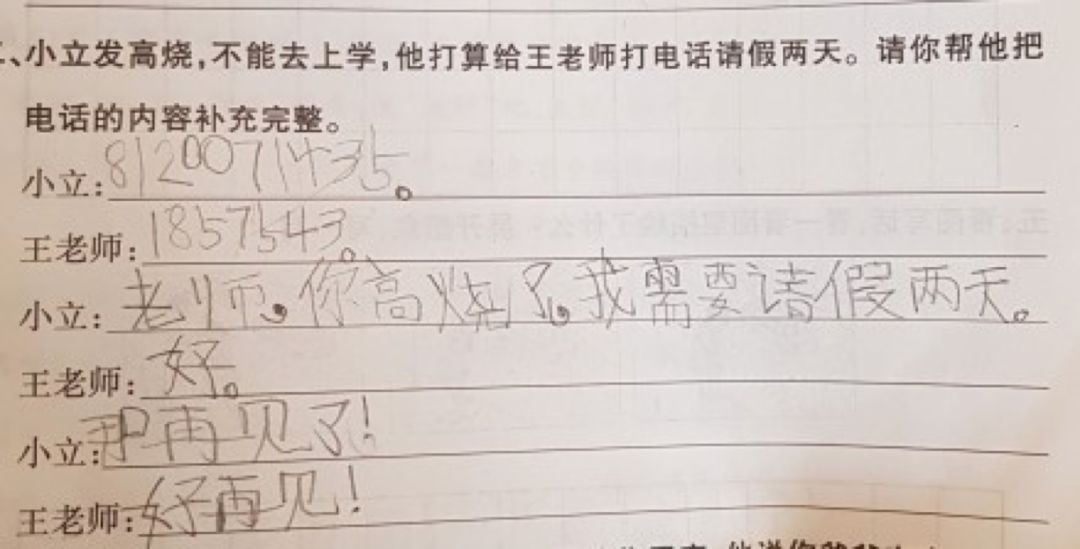 、小立发高烧,不能去上学,他打算给王老师打电话请假两天。请你帮他把
电话的内容补充完整。
小立:81200711435。
王老师:1857543。
小立:老师。你高烧了。我需要请假两天。
王老师:好。
小立:那再见了!
王老师:好再见!